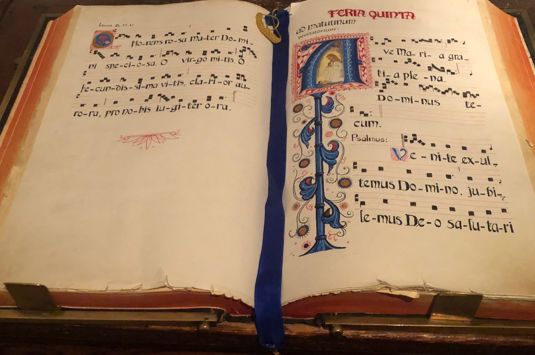 Florens rosa mater Domi-
ni speciosa O virgo mitis O
fecundissima vitis clarior au-
rora, pro nobis jugiter ora.
FERIA QUINTA
ad matutinum
Ave Maria gra-
tia plena.
Dominus te-
cum.
Psalmus:
Venite exul-
temus Domino, jubi-
lemus Deo salutari